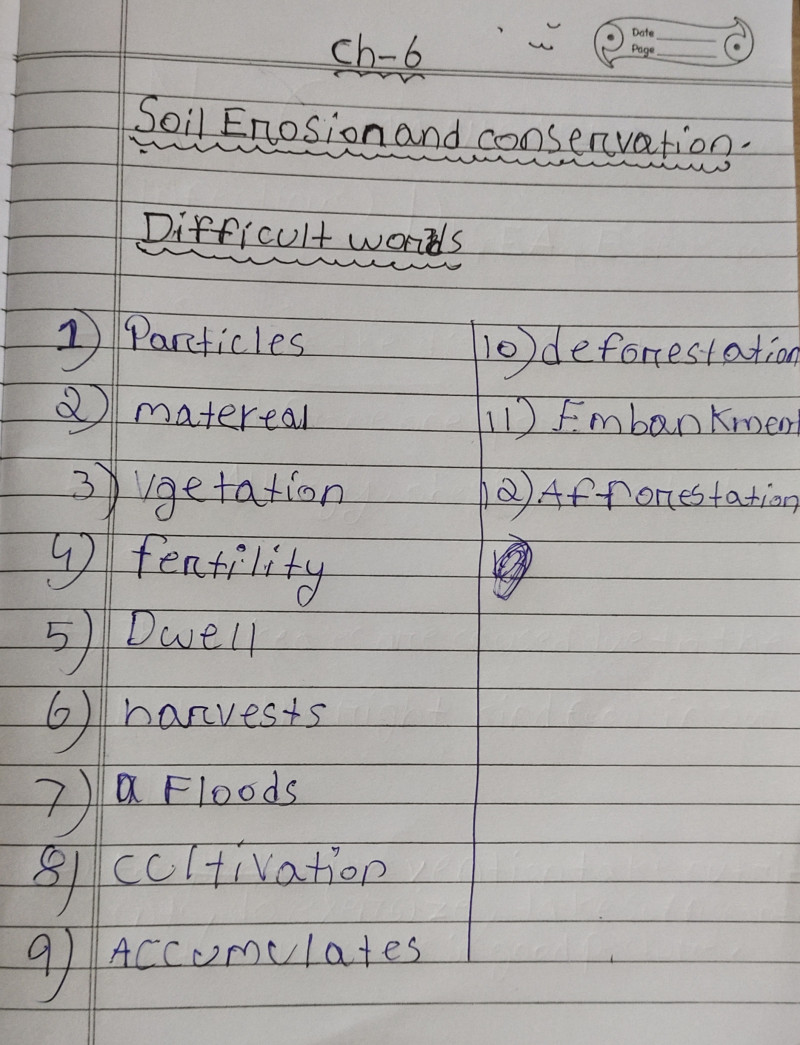 Date
Page
Ch-6
Soil Erosion and conservation.
Difficult words
1) Particles
2) matereal
3) Vgetation
4) fertility
5) Dwell
6) harvests
7) a Floods
8) CCltivation
9) Accumulates
10) deforestation
11) Embankment
12) Afforestation